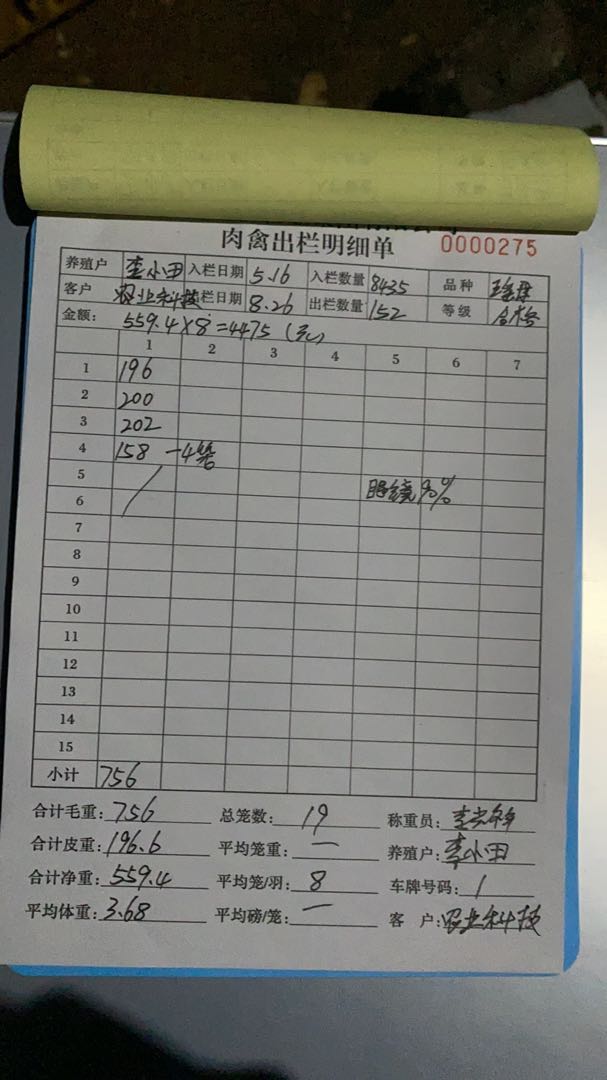 肉禽出栏明细单 0000275
养殖户 李小田 入栏日期 5.16 入栏数量 8435 品种
客户 农业科技 出栏日期 8.26 出栏数量 152 等级 合格
金额: 559.4×8=4475 (元)
1 2 3 4 5 6 7
1 196
2 200
3 202
4 158 -4笼
5
6 90%
7
8
9
10
11
12
13
14
15
小计 756
合计毛重: 756 总笼数: 19 称重员:
合计皮重: 196.6 平均笼重: — 养殖户: 李小田
合计净重: 559.4 平均笼/羽: 8 车牌号码: /
平均体重: 3.68 平均磅/笼: — 客 户: 农业科技